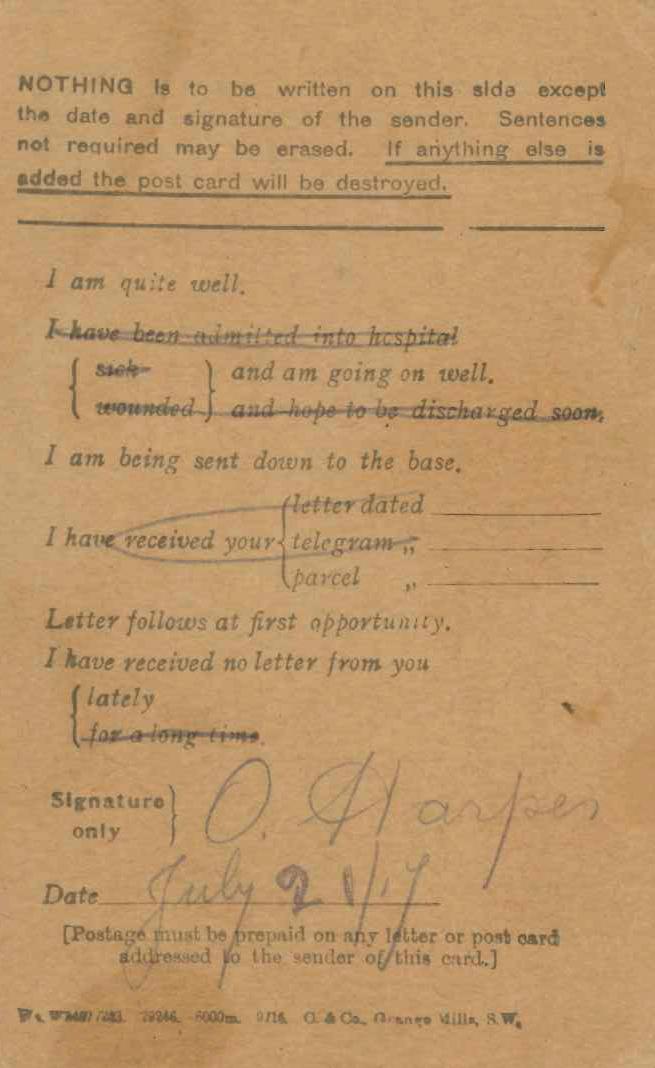 NOTHING is to be written on this side except
the date and signature of the sender. Sentences
not required may be erased. If anything else is
added the post card will be destroyed.
I am quite well.
I have been admitted into hospital
sick and am going on well.
wounded and hope to be discharged soon.
I am being sent down to the base.
letter dated
I have received your telegram „
parcel „
Letter follows at first opportunity.
I have received no letter from you
lately
for a long time.
Signature
only
O. Harper
Date July 21/17
[Postage must be prepaid on any letter or post card
addressed to the sender of this card.]
29246. 6000m. 9/16. C. & Co., Grange Mills, S.W.